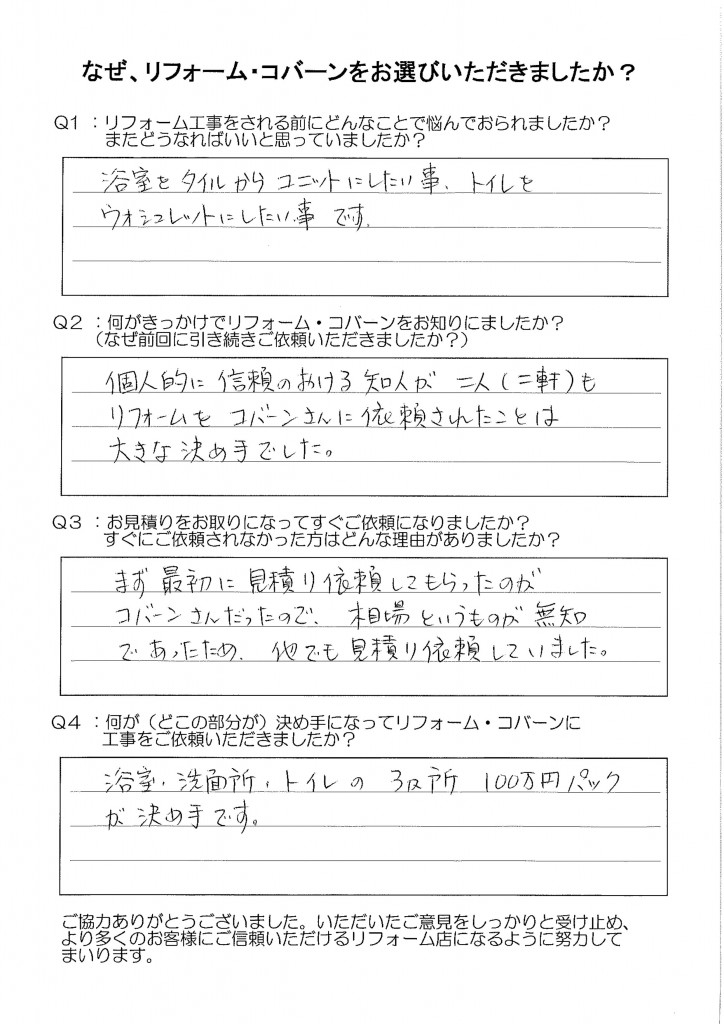 なぜ、リフォーム・コバーンをお選びいただきましたか？
Q1 ：リフォーム工事をされる前にどんなことで悩んでおられましたか？
またどうなればいいと思っていましたか？
浴室をタイルからユニットにしたい事、トイレを
ウォシュレットにしたい事です。
Q2 ：何がきっかけでリフォーム・コバーンをお知りにましたか？
（なぜ前回に引き続きご依頼いただきましたか？）
個人的に信頼のおける知人が二人（二軒）も
リフォームをコバーンさんに依頼されたことは
大きな決め手でした。
Q3 ：お見積りをお取りになってすぐご依頼になりましたか？
すぐにご依頼されなかった方はどんな理由がありましたか？
まず最初に見積り依頼してもらったのが
コバーンさんだったので、相場というものが無知
であったため、他でも見積り依頼していました。
Q4 ：何が（どこの部分が）決め手になってリフォーム・コバーンに
工事をご依頼いただきましたか？
浴室・洗面所・トイレの 3ヶ所 100万円パック
が決め手です。
ご協力ありがとうございました。いただいたご意見をしっかりと受け止め、
より多くのお客様にご信頼いただけるリフォーム店になるように努力して
まいります。